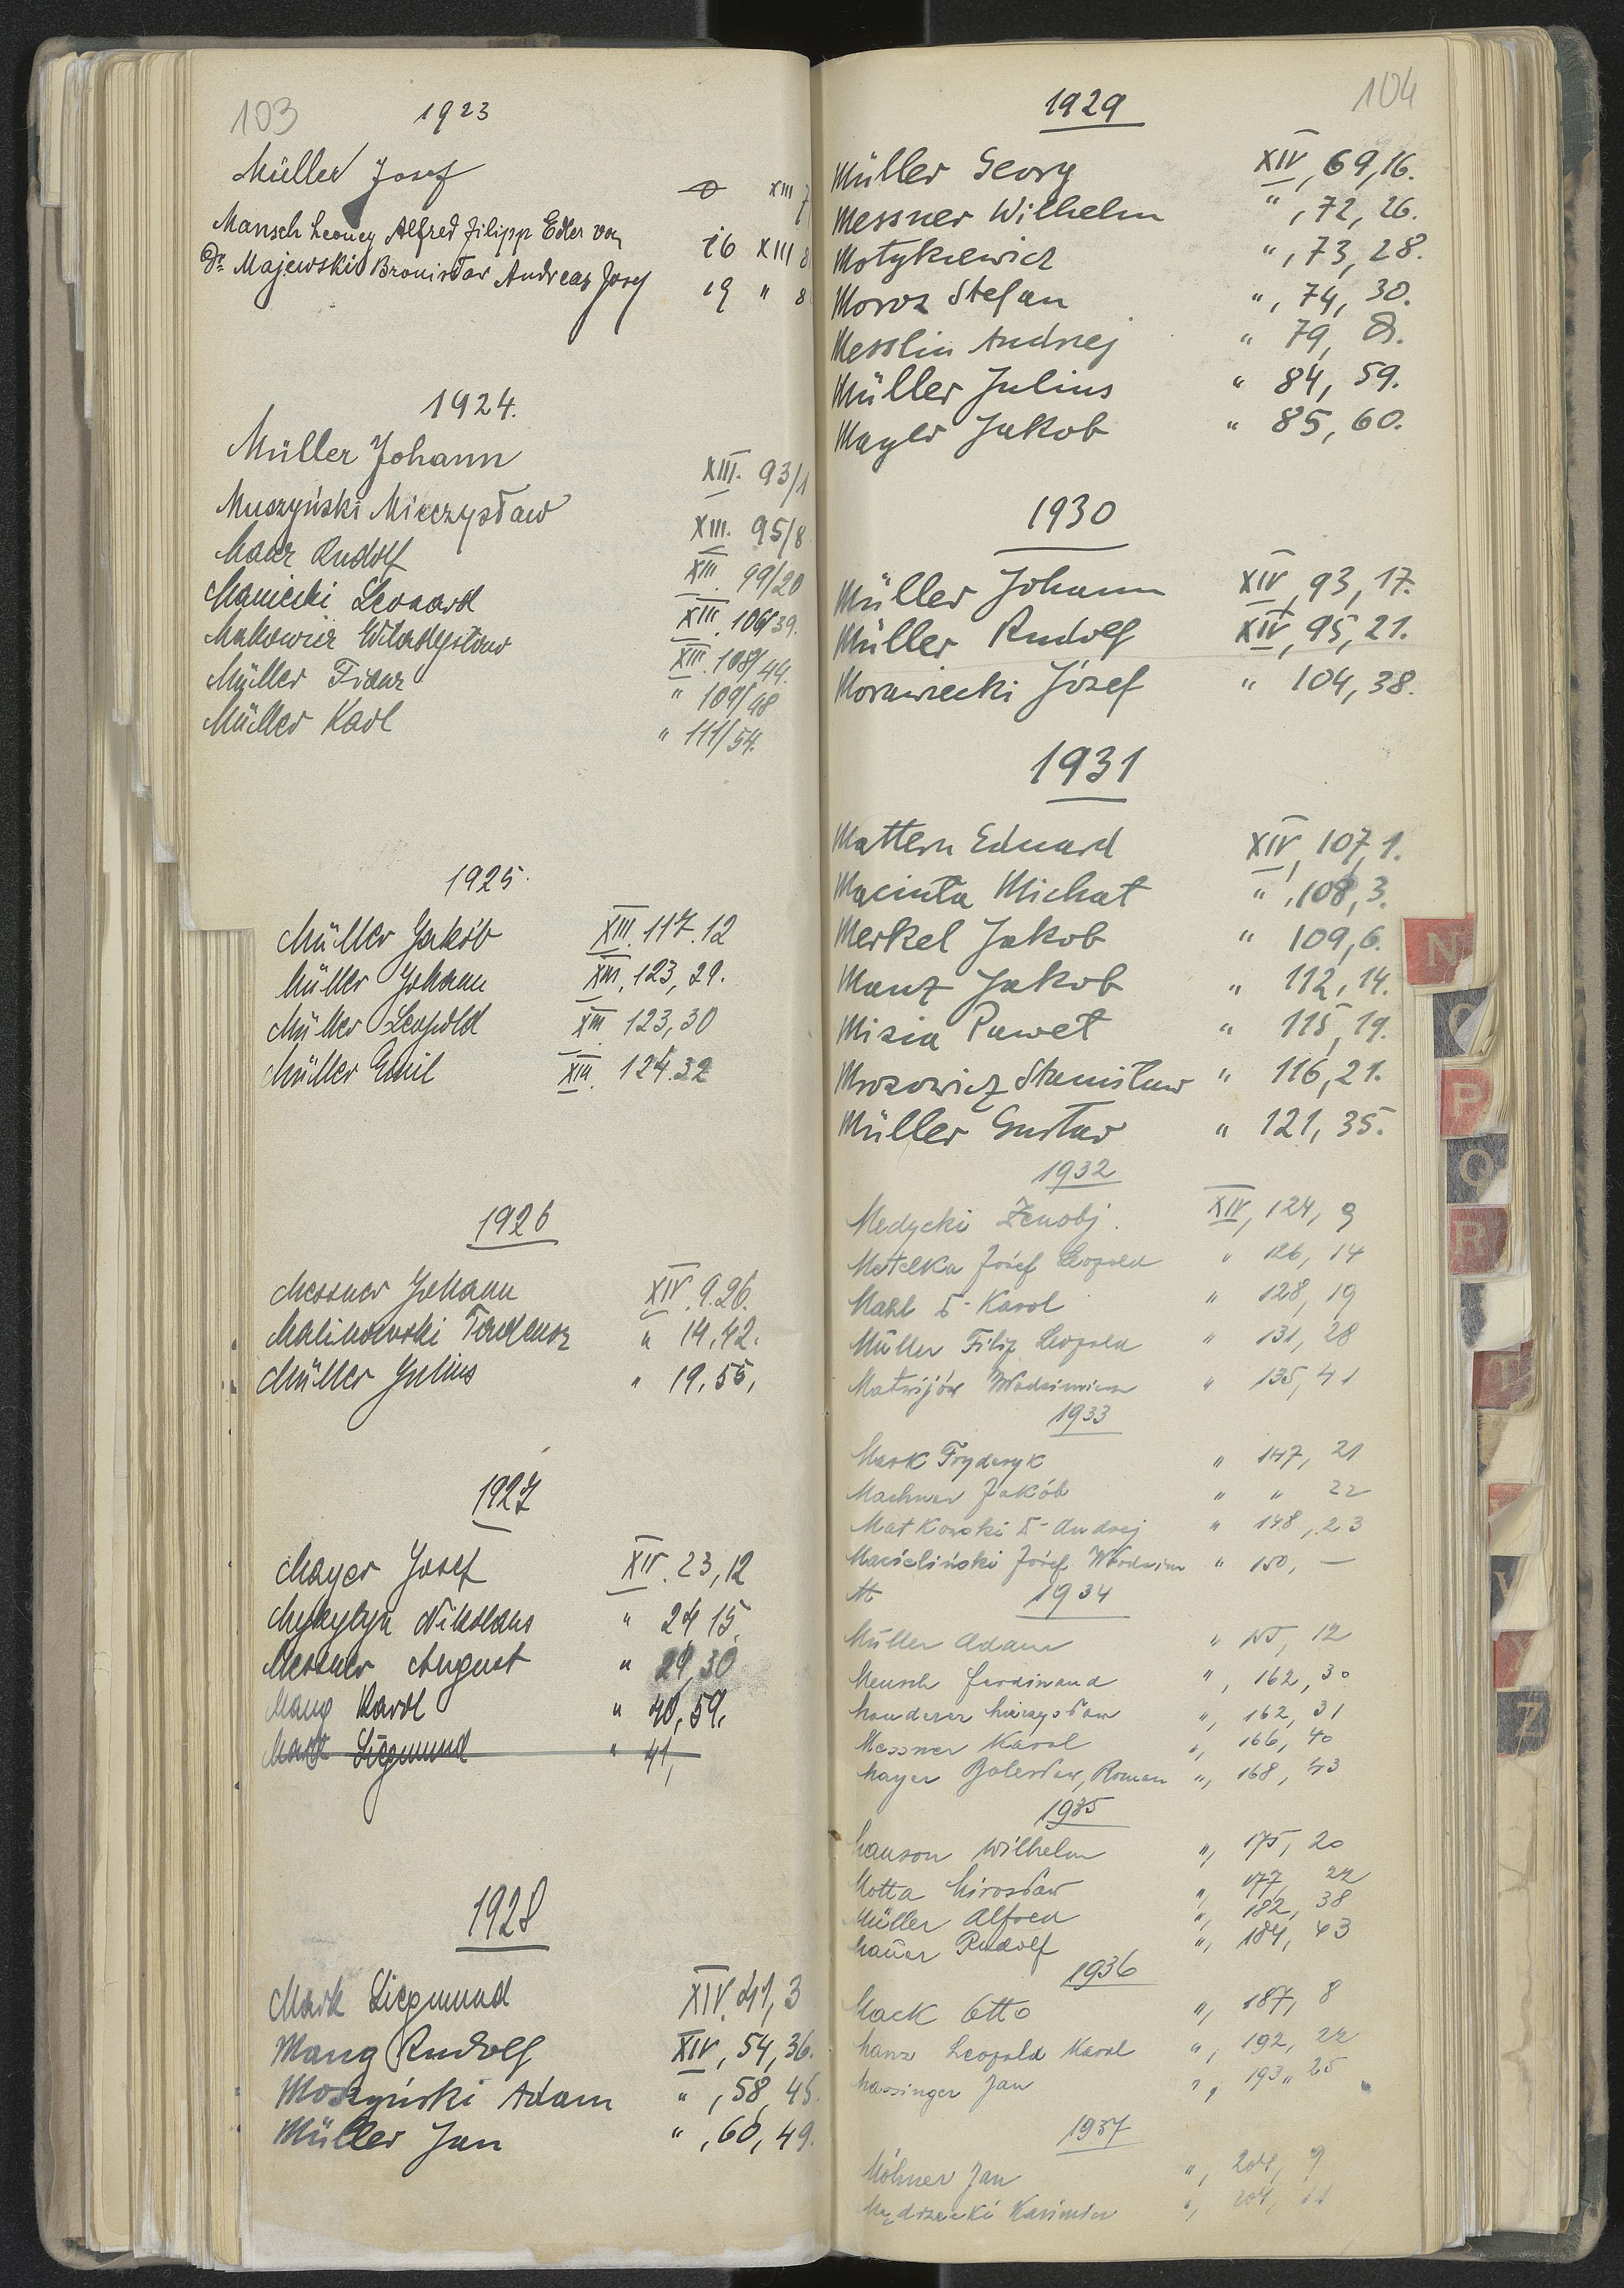 103
1923
Müller Josef 0 XIII 7
Mansch Alfred Filipp Edler von 16 XIII 8
Dr Majewski Bronisław Andreas Josef 19 " 8
1924.
Müller Johann XIII. 93/1
Muszyński Mieczysław XIII. 95/8
Maur Rudolf XIII 99/20
Manicki Leonard XIII. 106/39.
Makowicz Władysław XIII. 108/44.
Müller Franz " 109/48
Müller Karl " 111/54.
1925.
Müller Jakób XIII. 117.12
Müller Johann XIII, 123, 29.
Müller Leopold XIII 123, 30
Müller Emil XIII. 124.32
1926
Messner Johann XIV. 9.26.
Malinowski Tadeusz " 14.42.
Müller Julius " 19.55,
1927
Mayer Josef XIV. 23,12
Mykytyn Nikolaus " 24 15.
Messner August " 29,30
Mang Karl " 40,59.
Mark Siegmund " 41,
1928
Mark Siegmund XIV. 41, 3
Mang Rudolf XIV, 54, 36.
Moszyński Adam ", 58, 45.
Müller Jan ", 60, 49.
104
1929
Müller Georg XIV, 69,16.
Messner Wilhelm ", 72, 26.
Motykiewicz ", 73, 28.
Moroz Stefan ", 74, 30.
Messlin Andrzej " 79,
Müller Julius " 84, 59.
Mayer Jakob " 85, 60.
1930
Müller Johann XIV, 93, 17.
Müller Rudolf XIV, 95, 21.
Morawiecki Józef " 104, 38.
1931
Mattern Eduard XIV, 107, 1.
Macinta Michał ", 108, 3.
Merkel Jakob " 109, 6.
Manz Jakob " 112, 14.
Misia Paweł " 115, 19.
Mrozowicz Stanisław " 116, 21.
Müller Gustav " 121, 35.
1932
Medycki Zenobj. XIV, 124, 9
Metelka Józef Leopold " 126, 14
Mahl Karol " 128, 19
Müller Filip Leopold " 131, 28
Matwijów Włodzimierz " 135, 41
1933
Mark Fryderyk " 147, 21
Machner Jakób " " 22
Matkowski Andrzej " 148, 23
Macieliński Józef Włodzim " 150, —
M 1934
Müller Adam " 155, 12
Mensch Ferdinand ", 162, 30
Manderer Mieczysław ", 162, 31
Messner Karol ", 166, 40
Mayer Bolesław, Roman ", 168, 43
1935
Manson Wilhelm ", 175, 20
Motta Mirosław ", 177, 22
Müller Alfred ", 182, 38
Mauer Rudolf ", 184, 43
1936
Mack Otto ", 187, 8
Manz Leopold Karol ", 192, 22
Massinger Jan ", 193, 25
1937
Möhner Jan ", 204, 9
Mądrzecki Kazimier ", 204, 11
N
P
Q
R
T
Z